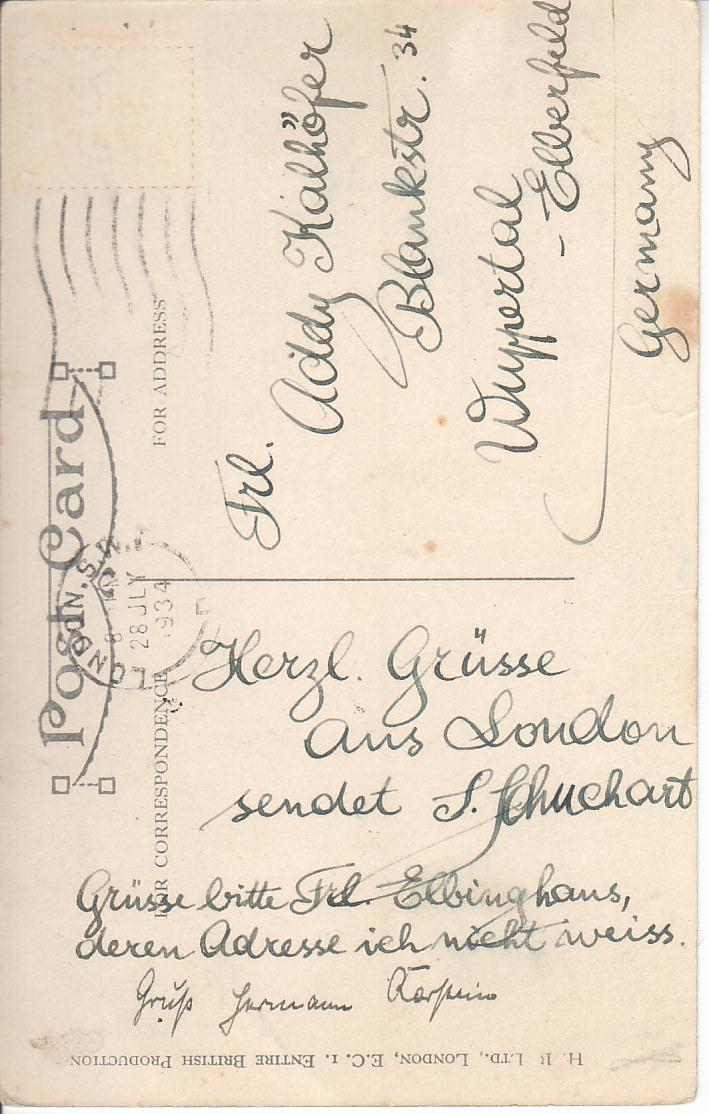 Post Card
FOR CORRESPONDENCE
FOR ADDRESS
LONDON, S.W.
28 JLY
1934
Frl.
Addy Kalhöfer
Blankstr. 34
Wuppertal
- Elberfeld
Germany
Herzl. Grüsse
aus London
sendet S. Schuchart
Grüsse bitte Frl. Elbinghaus,
deren Adresse ich nicht weiss.
Gruß Hermann
H. B. LTD., LONDON, E.C. 1. ENTIRE BRITISH PRODUCTION